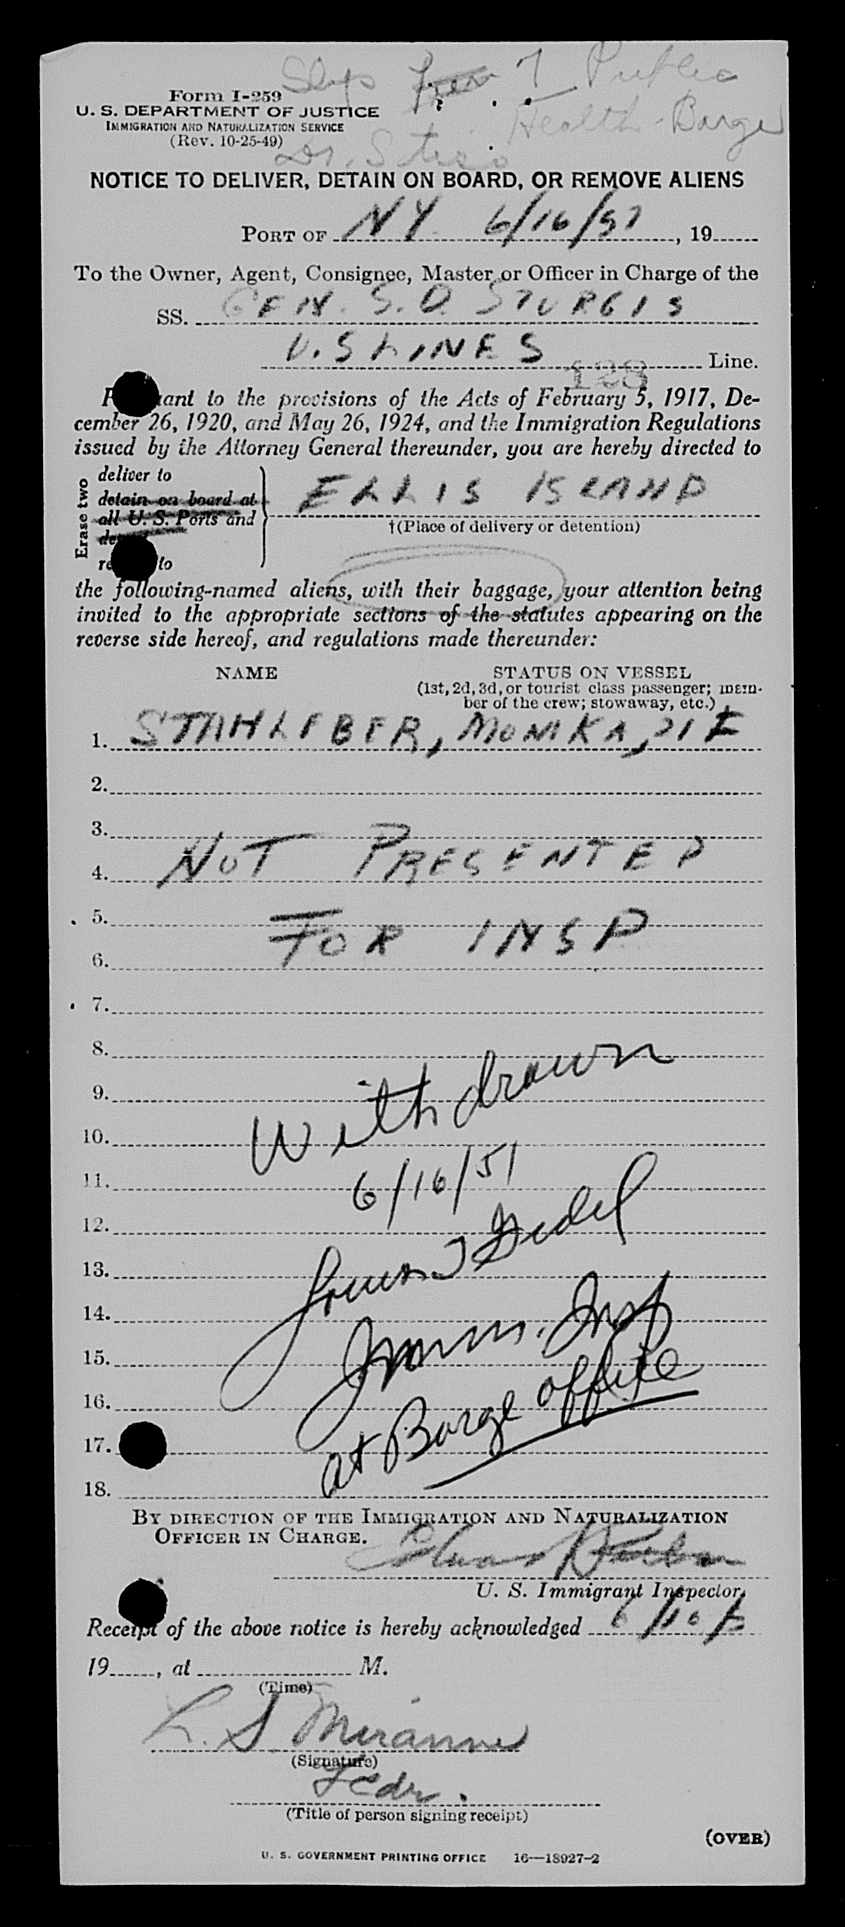 Slip from T Public
Form I-259
U. S. DEPARTMENT OF JUSTICE
Health-Barge
IMMIGRATION AND NATURALIZATION SERVICE
(Rev. 10-25-49)
Dr.
NOTICE TO DELIVER, DETAIN ON BOARD, OR REMOVE ALIENS
PORT OF NY 6/16/51, 19
To the Owner, Agent, Consignee, Master or Officer in Charge of the
SS. GEN. S. D. STURGIS
U.S LINES Line.
128
Pursuant to the provisions of the Acts of February 5, 1917, De-
cember 26, 1920, and May 26, 1924, and the Immigration Regulations
issued by the Attorney General thereunder, you are hereby directed to
Erase two
deliver to
detain on board at
all U. S. Ports and
to
ELLIS ISLAND
†(Place of delivery or detention)
the following-named aliens, with their baggage, your attention being
invited to the appropriate sections of the statutes appearing on the
reverse side hereof, and regulations made thereunder:
NAME STATUS ON VESSEL
(1st, 2d, 3d, or tourist class passenger; mem-
ber of the crew; stowaway, etc.)
1. STAHLEBER, MONIKA, 21 E
2.
3.
4. NOT PRESENTED
5.
6. FOR INSP
7.
8.
9. Withdrawn
10.
11. 6/16/51
12.
13.
14.
15. Immn. Insp
16.
17. at Barge office
18.
BY DIRECTION OF THE IMMIGRATION AND NATURALIZATION
OFFICER IN CHARGE.
U. S. Immigrant Inspector.
Receipt of the above notice is hereby acknowledged 6/16/5
19, at M.
(Time)
L. S. Miranne
(Signature)
(Title of person signing receipt)
(OVER)
U. S. GOVERNMENT PRINTING OFFICE 16—18927-2